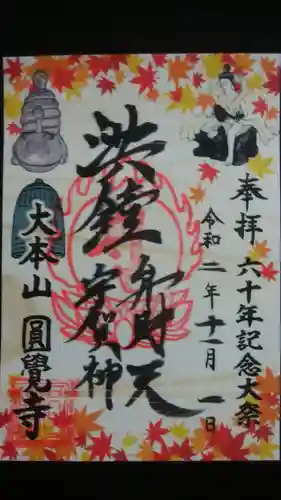 奉拝 六十年記念大祭
令和二年十一月一日
洪鐘 弁財天
宇賀神
大本山 圓覺寺